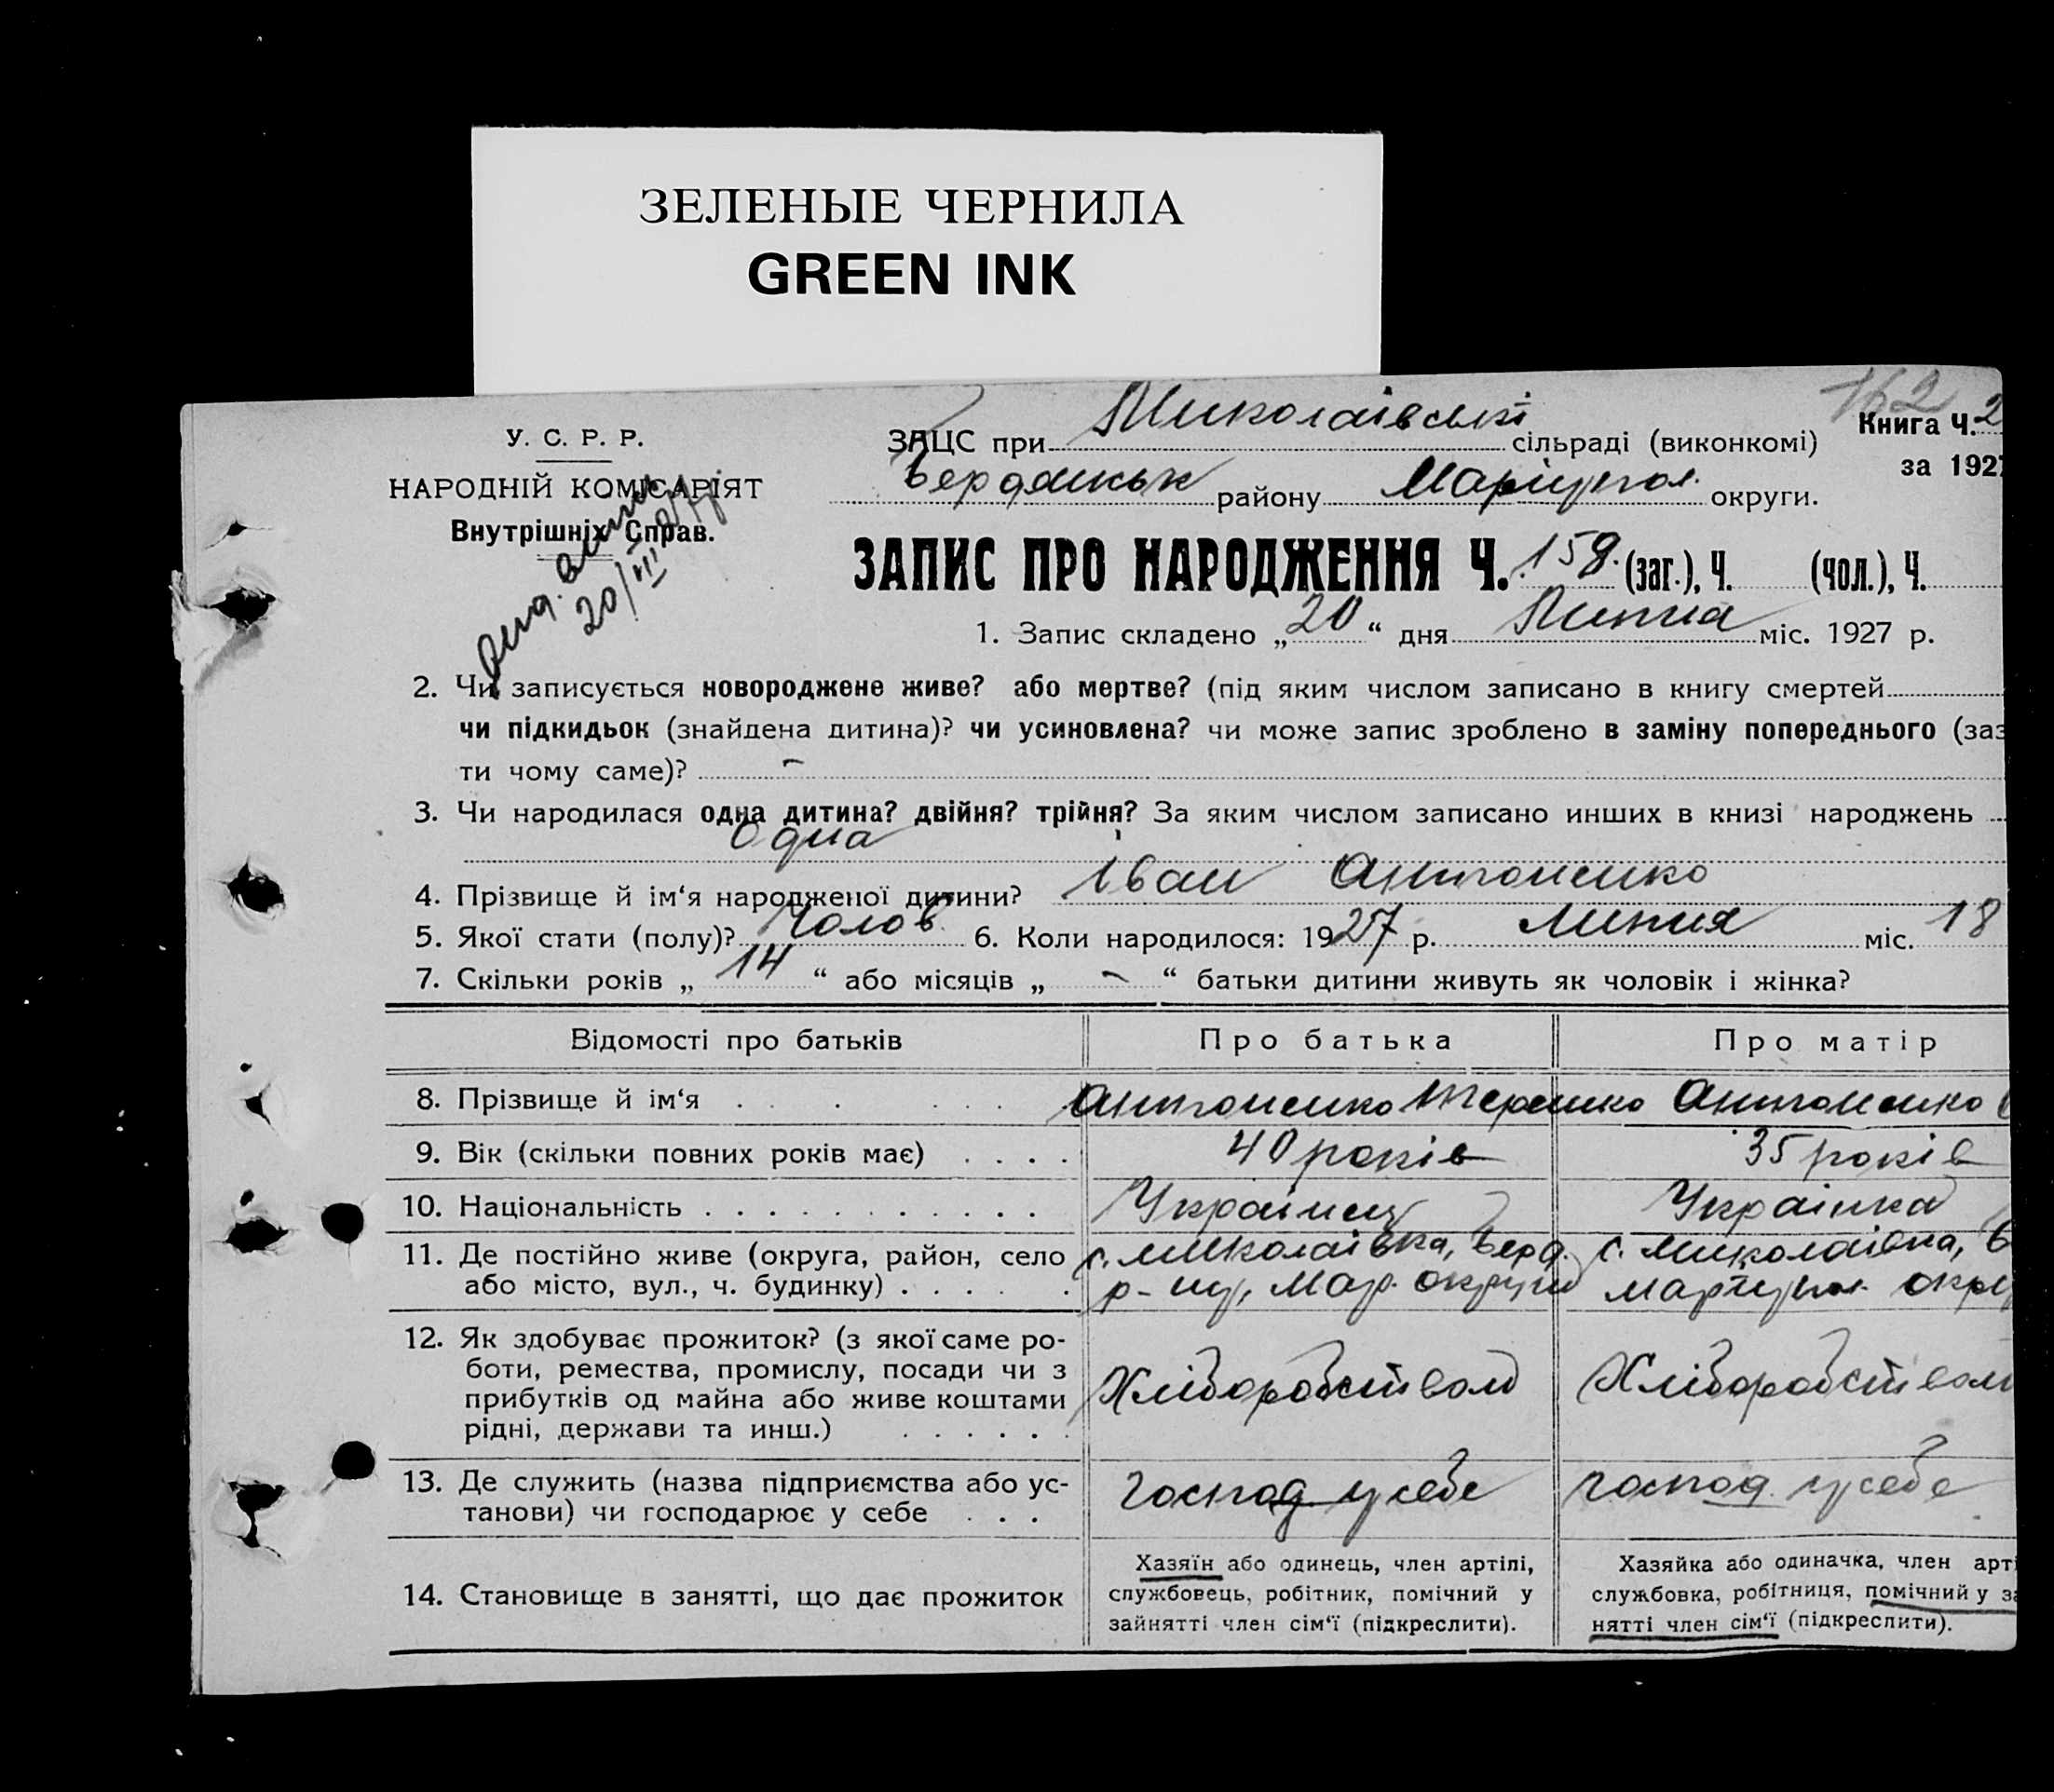 ЗЕЛЕНЫЕ ЧЕРНИЛА
GREEN INK
162
У. С. Р. Р.
НАРОДНІЙ КОМІСАРІЯТ
Внутрішніх Справ.
20/III
ЗАЦС при Миколаївські сільраді (виконкомі)
Книга Ч. 2
за 1927
Бердянськ району Маріупол. округи.
ЗАПИС ПРО НАРОДЖЕННЯ Ч. 159. (заг.), Ч. (чол.), Ч.
1. Запис складено „20“ дня Липня міс. 1927 р.
2. Чи записується новороджене живе? або мертве? (під яким числом записано в книгу смертей
чи підкидьок (знайдена дитина)? чи усиновлена? чи може запис зроблено в заміну попереднього (заз
ти чому саме)? -
3. Чи народилася одна дитина? двійня? трійня? За яким числом записано инших в книзі народжень
Одна
4. Прізвище й ім‘я народженої дитини? Іван Антоненко
5. Якої стати (полу)? Чолов. 6. Коли народилося: 1927 р. липня міс. 18
7. Скільки років „14“ або місяців „-“ батьки дитини живуть як чоловік і жінка?
Відомості про батьків Про батька Про матір
8. Прізвище й ім‘я Антоненко Терешко Антоненко
9. Вік (скільки повних років має) 40 років 35 років
10. Національність Українец Українка
11. Де постійно живе (округа, район, село с. Миколаївка, Берд. с. Миколаївка, Б
або місто, вул., ч. будинку) р-ну, Мар. округи Маріупол. окру
12. Як здобуває прожиток? (з якої саме ро-
боти, ремества, промислу, посади чи з Хліборобством Хліборобством
прибутків од майна або живе коштами
рідні, держави та инш.)
13. Де служить (назва підприємства або ус- господ. у себе господ. у себе
танови) чи господарює у себе
Хазяїн або одинець, член артілі, Хазяйка або одиначка, член арті
14. Становище в занятті, що дає прожиток службовець, робітник, помічний у службовка, робітниця, помічний у за
зайнятті член сім‘ї (підкреслити). нятті член сім‘ї (підкреслити).